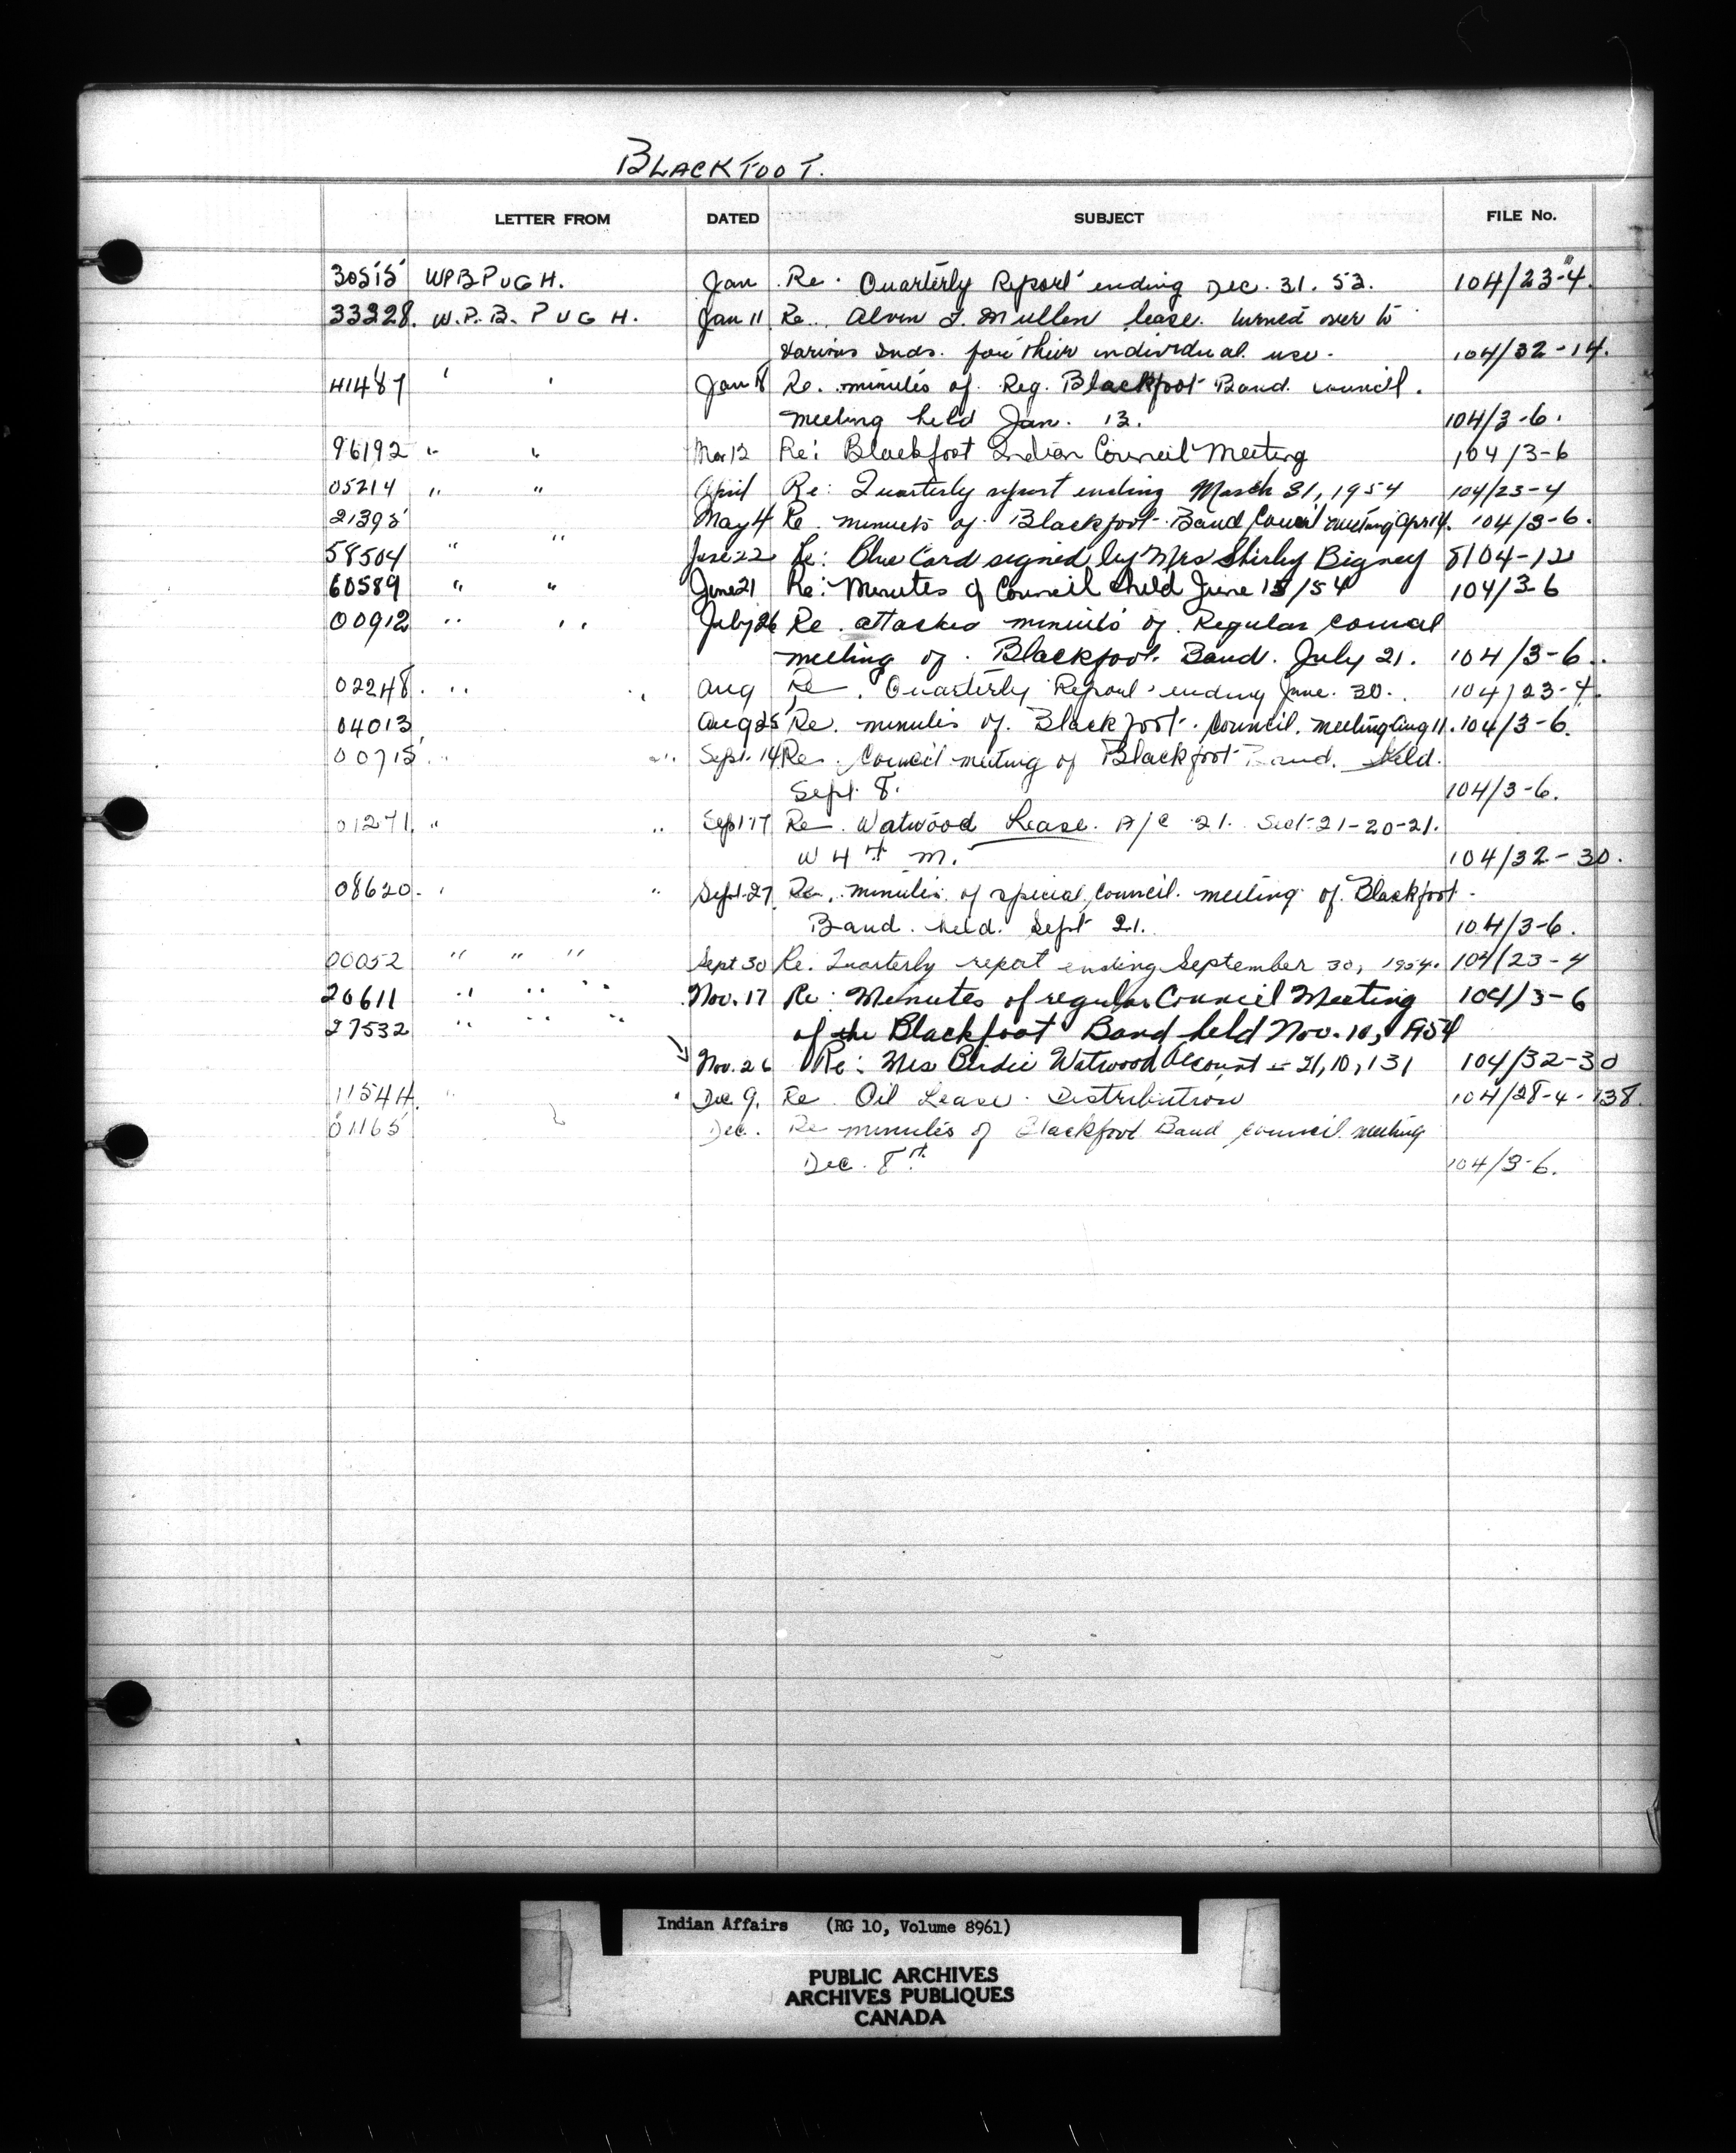 BLACKFOOT.
LETTER FROM DATED SUBJECT FILE No.
30515 WPB PUGH. Jan Re. Quarterly Report ending Dec. 31. 53. 104/23-4.
33228. W.P.B. PUGH. Jan 11 Re. Alvin J. Mullen lease. turned over to
various Inds. for their individual use. 104/32-14.
41487 " " Jan 18 Re. minutes of Reg. Blackfoot Band. council.
meeting held Jan. 13. 104/3-6.
96192 " " Mar 12 Re: Blackfoot Indian Council Meeting 104/3-6
05214 " " April Re: Quarterly report ending March 31, 1954 104/23-4
21395 May 4 Re. minutes of. Blackfoot Band Council meeting Apr 14. 104/3-6.
58504 " " June 22 Re: Blue Card signed by Mrs Shirley Bigney 8104-12
60589 " " June 21 Re: Minutes of Council held June 15/54 104/3-6
00912 " " July 26 Re. attached minutes of. Regular council
meeting of. Blackfoot. Band. July 21. 104/3-6.
02248. " " Aug Re. Quarterly Report ending June. 30. 104/23-4.
04013 Aug 25 Re. minutes of. Blackfoot. Council. meeting Aug 11. 104/3-6.
00715 " " Sept. 14 Re. Council meeting of Blackfoot Band. held.
Sept. 8. 104/3-6.
01271. " " Sept 17 Re. Watwood Lease. A/C 21. Sect-21-20-21.
W 4th m. 104/32-30.
08620. " " Sept-27 Re. minutes of special council. meeting of. Blackfoot.
Band. held. Sept 21. 104/3-6.
00052 " " " Sept 30 Re. Quarterly report ending September 30, 1954. 104/23-4
20611 " " " Nov. 17 Re: Minutes of regular Council Meeting 104/3-6
27532 " " " of the Blackfoot Band held Nov. 10, 1954
Nov. 26 Re: Mrs Birdie Watwood Account - 21, 10, 131 104/32-30
11544. " " Dec 9. Re. Oil Lease. Distribution 104/28-4-138.
01165 Dec. Re minutes of Blackfoot Band council. meeting
Dec. 8th. 104/3-6.
Indian Affairs (RG 10, Volume 8961)
PUBLIC ARCHIVES
ARCHIVES PUBLIQUES
CANADA